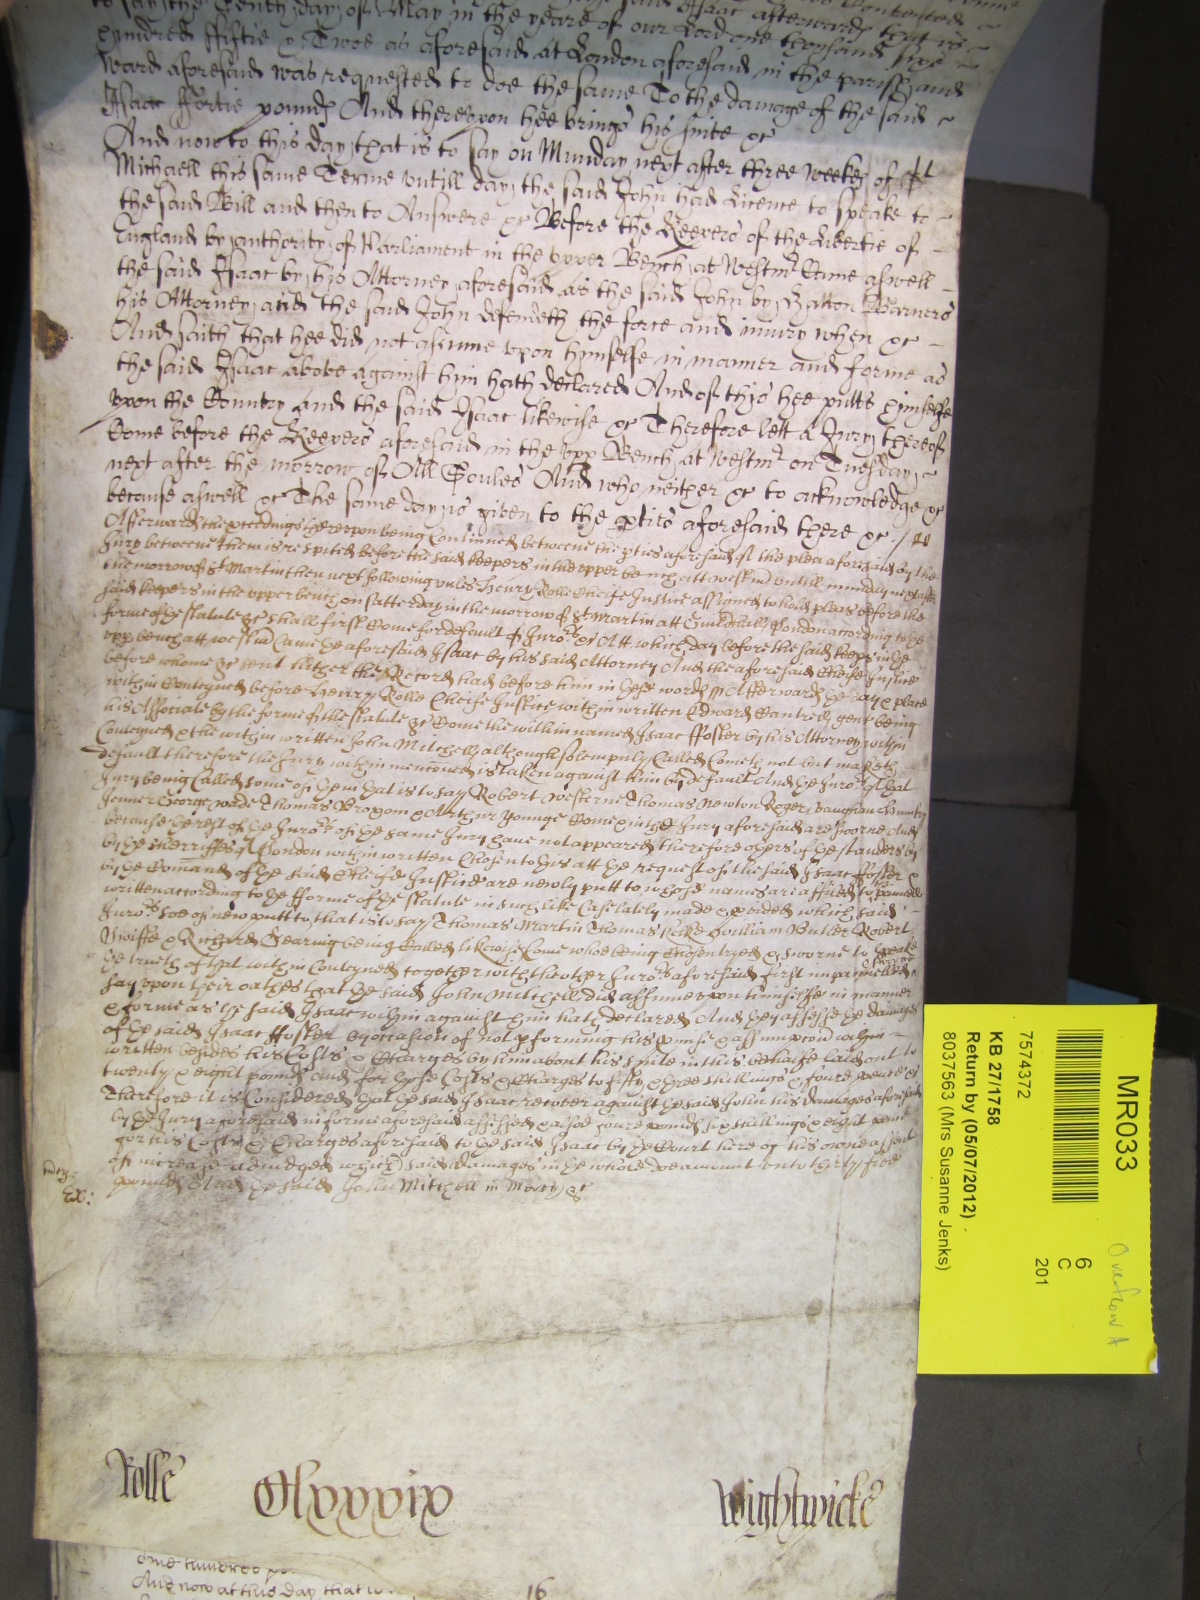 to say the Tenth day of May in the yeare of our Lord one thousand sixe
hundred ffiftie & Twoe as aforesaid at London aforesaid in the parish and
Ward aforesaid was requested to doe the same To the damage of the said
Isaac ffortie pounds And thereupon hee brings his suite &c
And now to this day that is to say on Munday next after three weekes of St
Michaell this same Terme untill day the said John had Licence to speake to
the said Bill and then to Answere &c Before the Keepers of the Libertie of
England by authority of Parliament in the upper Bench at Westmr Come aswell
the said Isaac by his Attorney aforesaid as the said John by Barners
his Attorney and the said John defendeth the force and iniury when &c
And saith that hee did not assume upon himselfe in manner and forme as
the said Isaac above against him hath declared And of this hee putts himselfe
upon the Country and the said Isaac likewise &c Therefore lett a Jury thereof
Come before the Keepers aforesaid in the upp Bench at Westmr on Tuesday
next after the morrow of All Soules And who neither &c to acknowledge &c
because aswell &c The same day is given to the pties aforesaid there &c
Afterwards the pceedings hereupon being Continued betweene the pties aforesaid of the plea aforesaid by the
Jury betweene them is respited before the said keepers in the upper bench att Westmr untill munday next after
the morrow of St Martin then next following unles Henry Rolle Cheife Justice assigned to hold pleas before the
said keepers in the upper bench on satterday in the morrow of St Martin att Guildhall London according to the
forme of the statute &c shall first Come for default of Jurors &c Att which day before the said keeps in the
upp bench att Westmr Came the aforesaid Isaac by his said Attorney And the aforesaid Cheife Justice
before whome &c sent hither the Record had before him in these words Afterwards the day & place
within Conteyned before Henry Rolle Cheife Justice within written Edward Cantrell gent being
his Associate by the forme of the statute &c Come the within named Isaac ffoster by his Attorney within
Conteyned & the within written John Mitchell although solempnly Called Cometh not but maketh
default therefore the Jury within mencioned is taken against him by default And the Jurors of that
Jury being Called some of them that is to say Robert Westerne Thomas Newton Roger Vaughan
Jenner George Wade Thomas Brogom & Arthur Younge Come & in the Jury aforesaid are sworne And
because the rest of the Jurors of the same Jury have not appeared therefore others of the standers by
by the sherriffes of London within written Chosen to this att the request of the said Isaac ffoster &
by the Comand of the said Cheife Justice are newly putt to whose names are affiled to the pannell
written according to the fforme of the statute in such like Case lately made & pvided which said
Jurors soe of new putt to, that is to say Thomas Martin Thomas William Butler Robert
& Richard Gearing being Called likewise Come whoe being Chosen tryed & sworne to speake
the truth of that within Conteyned together with the other Jurors aforesaid first impannelled & sworne
say upon their oathes that the said John Mitchell did assume upon himselfe in manner
& forme as the said Isaac within against him hath declared And they assesse the damages
of the said Isaac ffoster by occasion of not pforming his pmise & assumpcion within
written besides his Costs & Charges by him about his suite in this behalfe laid out to
twenty & eight pounds And for those Costs & Charges to fifty & three shillings & foure pence &c
Therefore it is Considered that the said Isaac recover against the said John his damages aforesaid
by the Jury aforesaid in forme aforesaid assessed & alsoe foure pounds six shillings & eight pence
for his Costs & Charges aforesaid to the said Isaac by the Court here of his owne assent
of increase adiudged which said damages in the whole doe amount unto thirty five
pounds And the said John Mitchell in Mercy &c
Ex:
Rolle Clxxxix Wightwicke
one hundred
And now at this day that is
16
MR033
6
C
201
Overflow A
7574372
KB 27/1758
Return by (05/07/2012)
8037563 (Mrs Susanne Jenks)